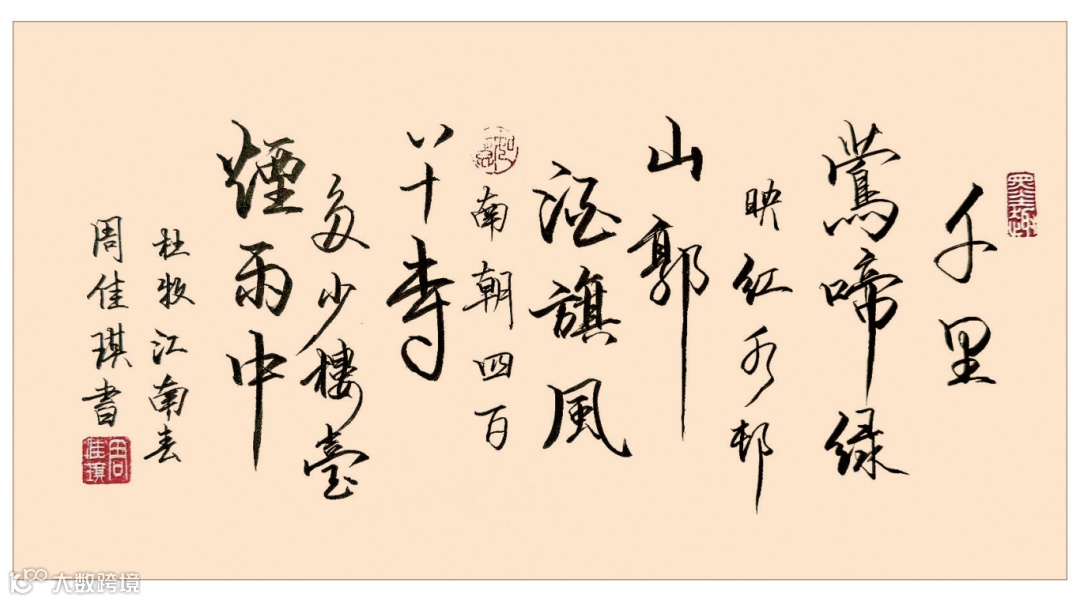 千里
鶯啼緑
映紅水邨
山郭
酒旗風
南朝四百
八十寺
多少樓臺
煙雨中
杜牧江南春
周佳琪書
周佳琪
大数跨境